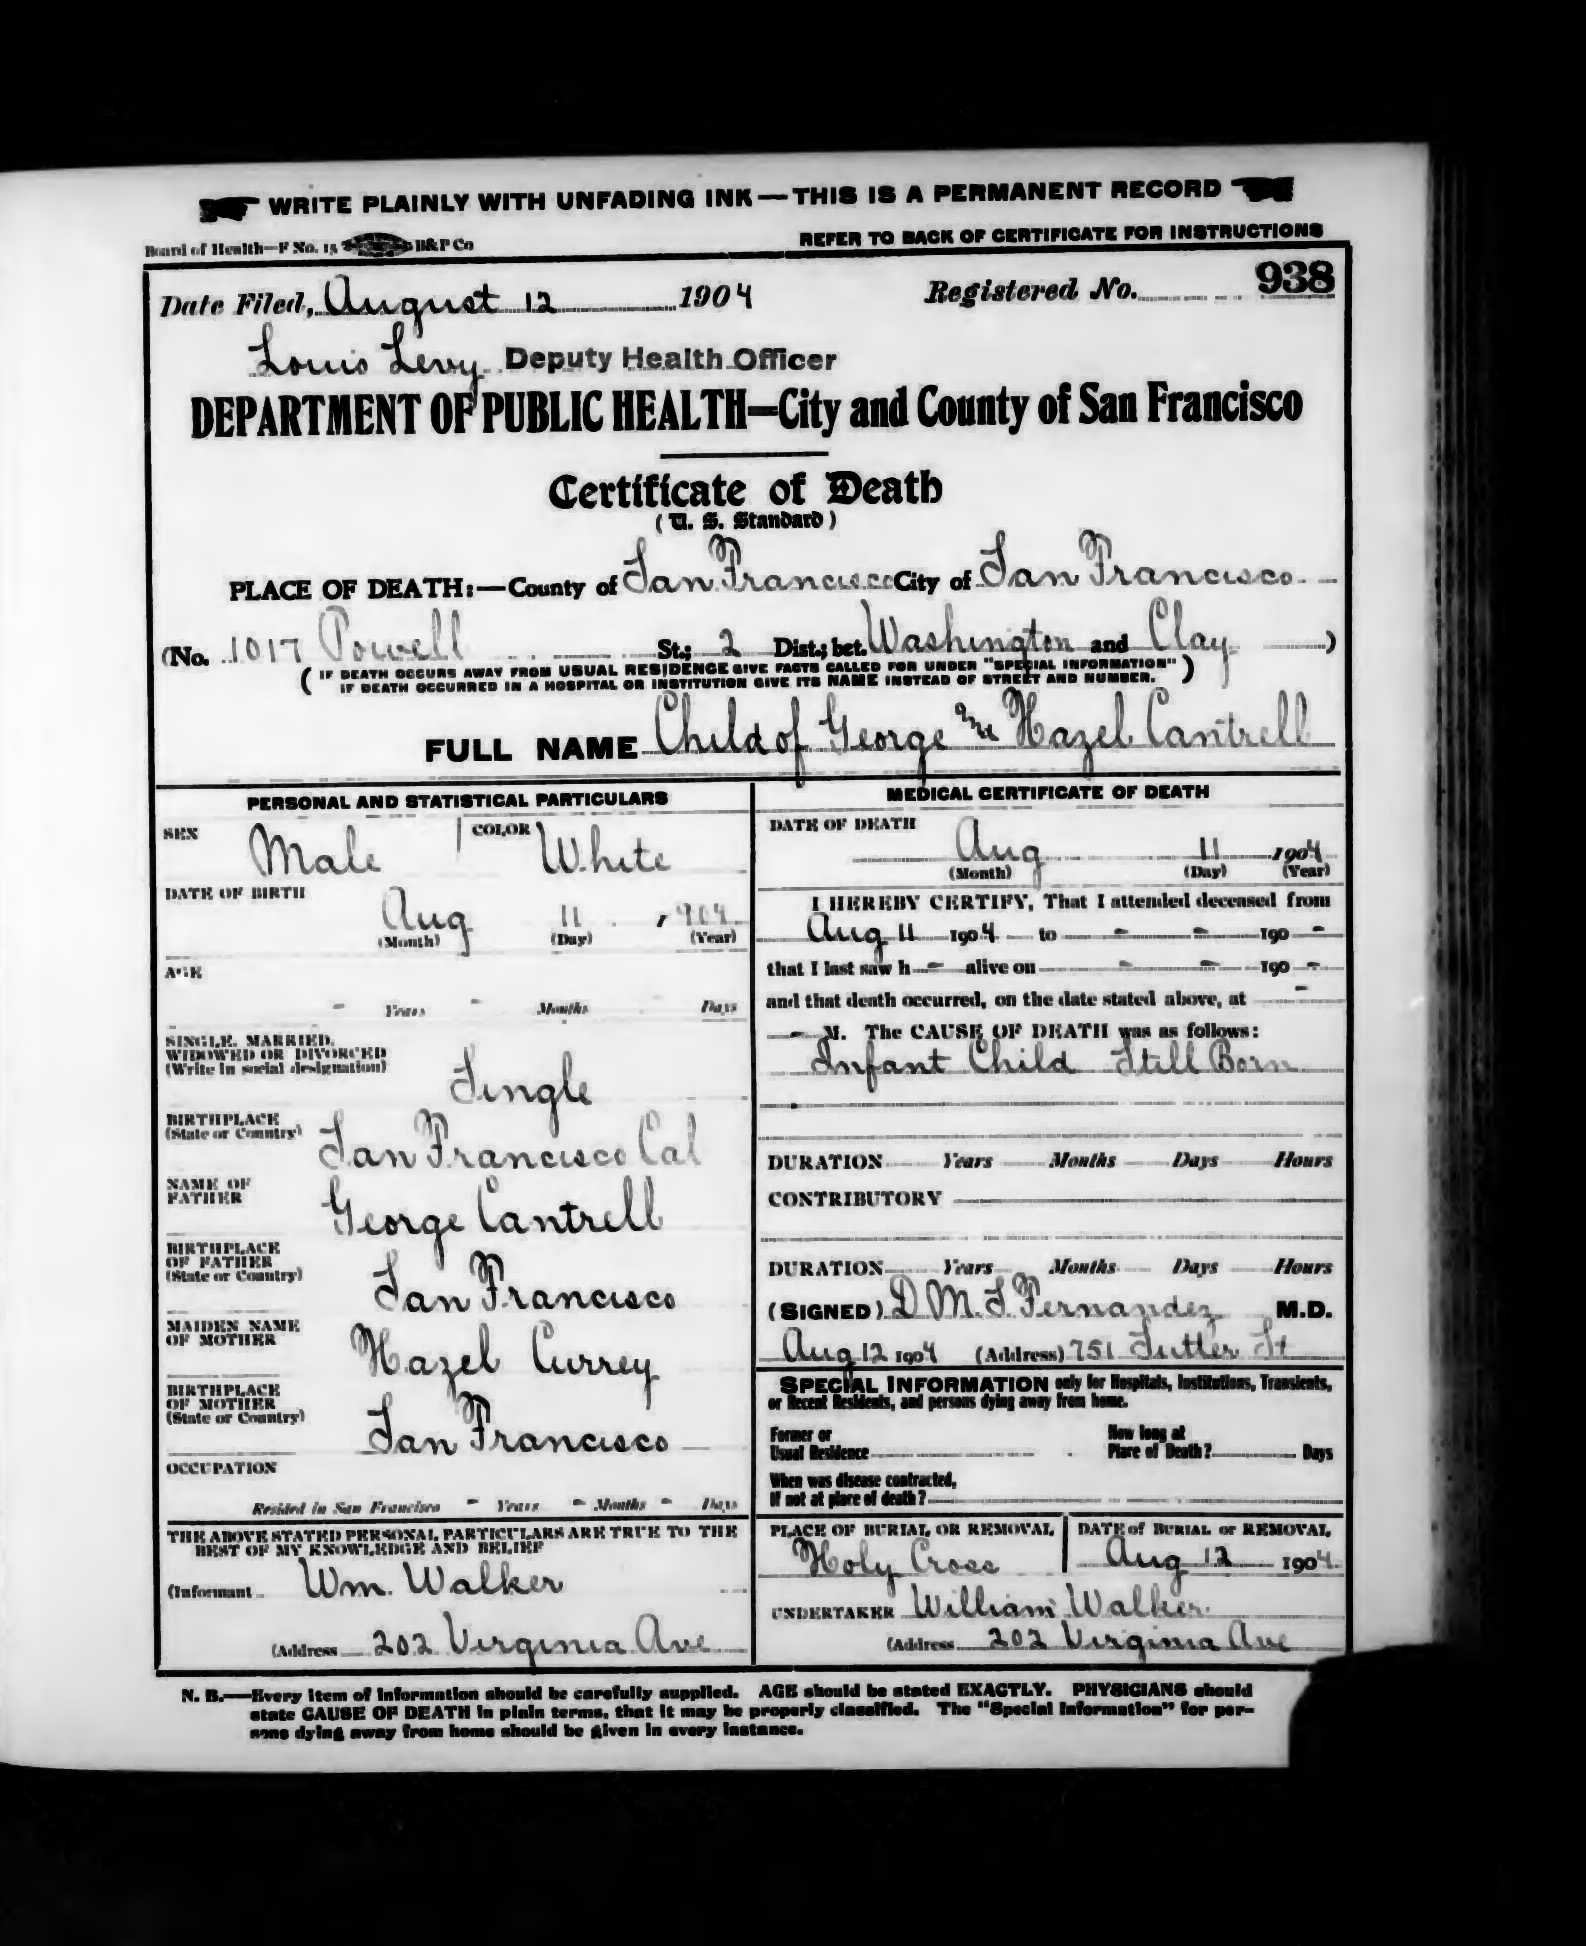 WRITE PLAINLY WITH UNFADING INK — THIS IS A PERMANENT RECORD
Board of Health—F No. 15 B&P Co
REFER TO BACK OF CERTIFICATE FOR INSTRUCTIONS
Date Filed, August 12 1904 Registered No. 938
Louis Levy Deputy Health Officer
DEPARTMENT OF PUBLIC HEALTH—City and County of San Francisco
Certificate of Death
(U. S. Standard)
PLACE OF DEATH:—County of San Francisco City of San Francisco
(No. 1017 Powell St.; 2 Dist.; bet. Washington and Clay )
( IF DEATH OCCURS AWAY FROM USUAL RESIDENCE GIVE FACTS CALLED FOR UNDER "SPECIAL INFORMATION" )
IF DEATH OCCURRED IN A HOSPITAL OR INSTITUTION GIVE ITS NAME INSTEAD OF STREET AND NUMBER.
FULL NAME Child of George and Hazel Cantrell
PERSONAL AND STATISTICAL PARTICULARS
SEX Male COLOR White
DATE OF BIRTH
Aug 11 , 904
(Month) (Day) (Year)
AGE
- Years - Months Days
SINGLE, MARRIED,
WIDOWED OR DIVORCED
(Write in social designation)
Single
BIRTHPLACE
(State or Country) San Francisco Cal
NAME OF
FATHER George Cantrell
BIRTHPLACE
OF FATHER
(State or Country) San Francisco
MAIDEN NAME
OF MOTHER Hazel Currey
BIRTHPLACE
OF MOTHER
(State or Country) San Francisco
OCCUPATION
Resided in San Francisco - Years - Months - Days
THE ABOVE STATED PERSONAL PARTICULARS ARE TRUE TO THE
BEST OF MY KNOWLEDGE AND BELIEF
(Informant Wm. Walker
(Address 202 Virginia Ave
MEDICAL CERTIFICATE OF DEATH
DATE OF DEATH
Aug 11 1904
(Month) (Day) (Year)
I HEREBY CERTIFY, That I attended deceased from
Aug 11 1904 to - - 190 -
that I last saw h - alive on - - 190 -
and that death occurred, on the date stated above, at -
- M. The CAUSE OF DEATH was as follows:
Infant Child Still Born
DURATION Years Months Days Hours
CONTRIBUTORY
DURATION Years Months Days Hours
(SIGNED) D M. F. Fernandez M.D.
Aug 12 1904 (Address) 751 Sutter St
SPECIAL INFORMATION only for Hospitals, Institutions, Transients,
or Recent Residents, and persons dying away from home.
Former or
Usual Residence
How long at
Place of Death? Days
When was disease contracted,
If not at place of death?
PLACE OF BURIAL OR REMOVAL
Holy Cross
DATE of BURIAL or REMOVAL
Aug 12 1904
UNDERTAKER William Walker
(Address 202 Virginia Ave
N. B.—Every item of information should be carefully supplied. AGE should be stated EXACTLY. PHYSICIANS should
state CAUSE OF DEATH in plain terms, that it may be properly classified. The "Special Information" for per-
sons dying away from home should be given in every instance.